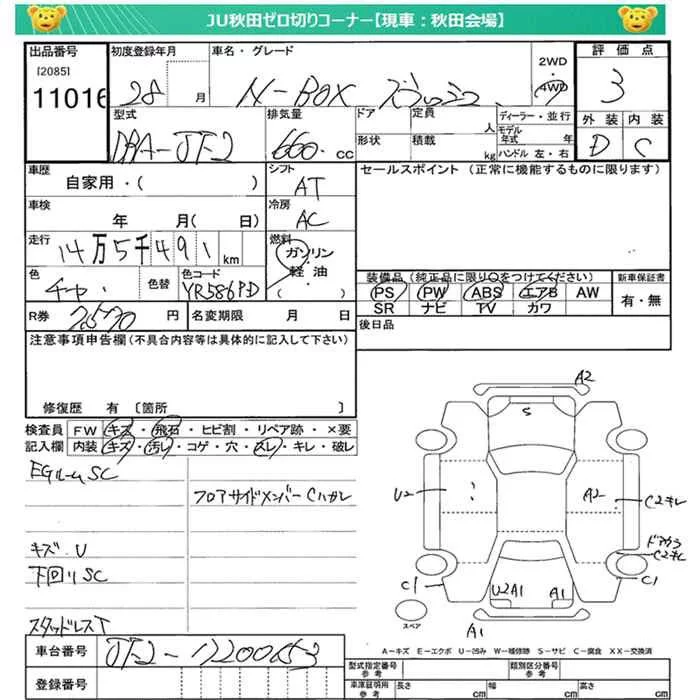 JU秋田ゼロ切りコーナー【現車：秋田会場】
出品番号 初度登録年月 車名・グレード 2WD 評価点
[2085] 11016 28 月 N-BOX 4WD 3
型式 排気量 ドア 定員 ディーラー・並行 外装 内装
DBA-JF2 660. cc 形状 積載 人 kg モデル年式 年 ハンドル 左・右 D C
車歴 シフト セールスポイント (正常に機能するものに限ります)
自家用・( ) AT
車検 冷房
年 月( 日) AC
走行 燃料
14万5千491km ガソリン 軽油 ・( )
色 色替 色コード 装備品 (純正品に限り○をつけてください) 新車保証書
YR586PD PS PW ABS エアB AW 有・無
SR ナビ TV カワ
R券 円 名変期限 月 日 後日品
注意事項申告欄(不具合内容等は具体的に記入して下さい)
修復歴 有 〔箇所 〕
検査員 FW キズ・飛石・ヒビ割・リペア跡・×要
記入欄 内装 キズ・汚レ・コゲ・穴・スレ・キレ・破レ
EGルームSC
フロアサイドメンバーCハガレ
キズ.U
下回りSC
スタッドレスT
A2
S
U2 A2 C2キレ
C1 U2A1 A1 C1
スペア A1
A－キズ E－エクボ U－凹み W－補修跡 S－サビ C－腐食 XX－交換済
車台番号 型式指定番号 参考 類別区分番号 参考
登録番号 車庫証明用 参考 長さ cm 幅 cm 高さ cm